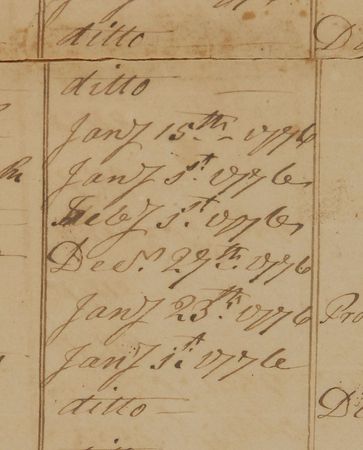 ditto
D
ditto
Jany 15th 1776
Jany 1st 1776
Feby 1st 1776
Decr 27th 1776
Jany 23th 1776 Pro
Jany 1st 1776
ditto
De